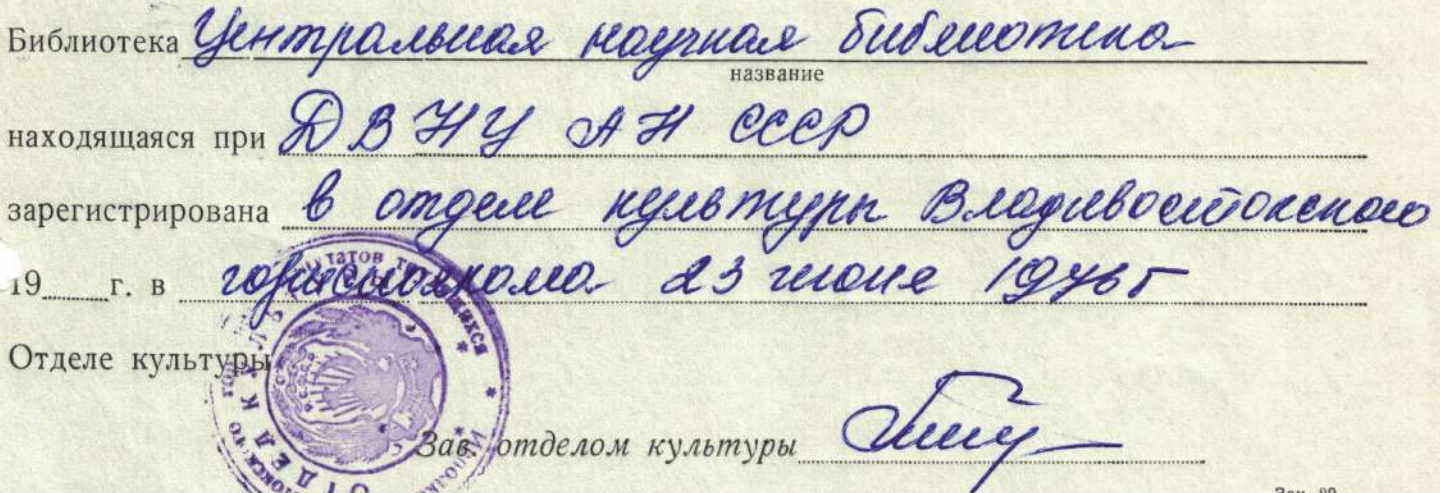 Библиотека Центральная научная библиотека
название
находящаяся при ДВНЦ АН СССР
зарегистрирована в отделе культуры Владивостокского
19 г. в горисполкома 23 июня 1976 г
Отделе культуры
Зав. отделом культуры